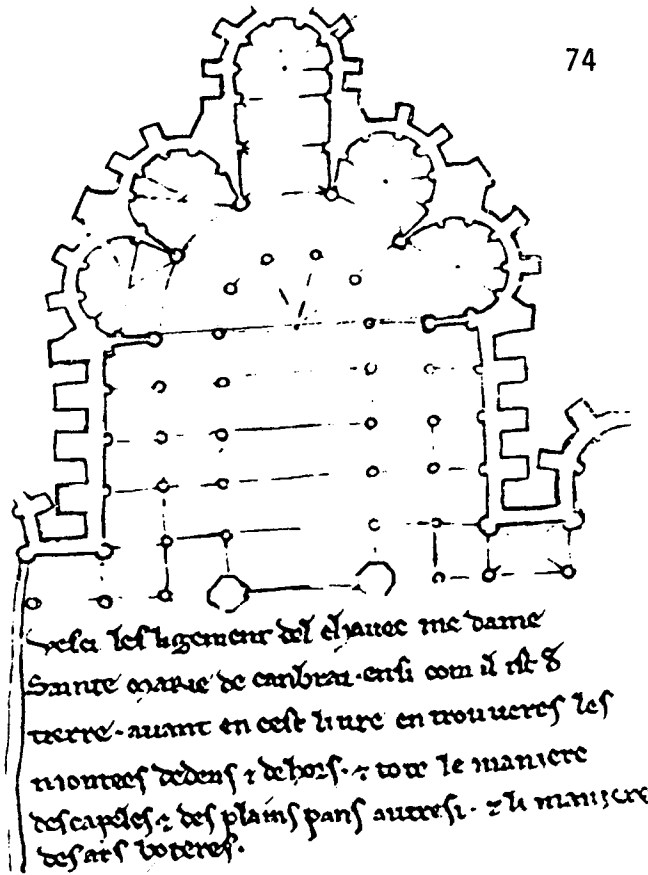 74
Vesci les ligement del chavec me dame
Sainte Marie de canbrai · ensi com il ist de
tierre · avant en cest livre en trouveres les
montees dedens ⁊ dehors · ⁊ tote le maniere
des capeles ⁊ des plains pans autresi · ⁊ li maniere
des ars boteres ·